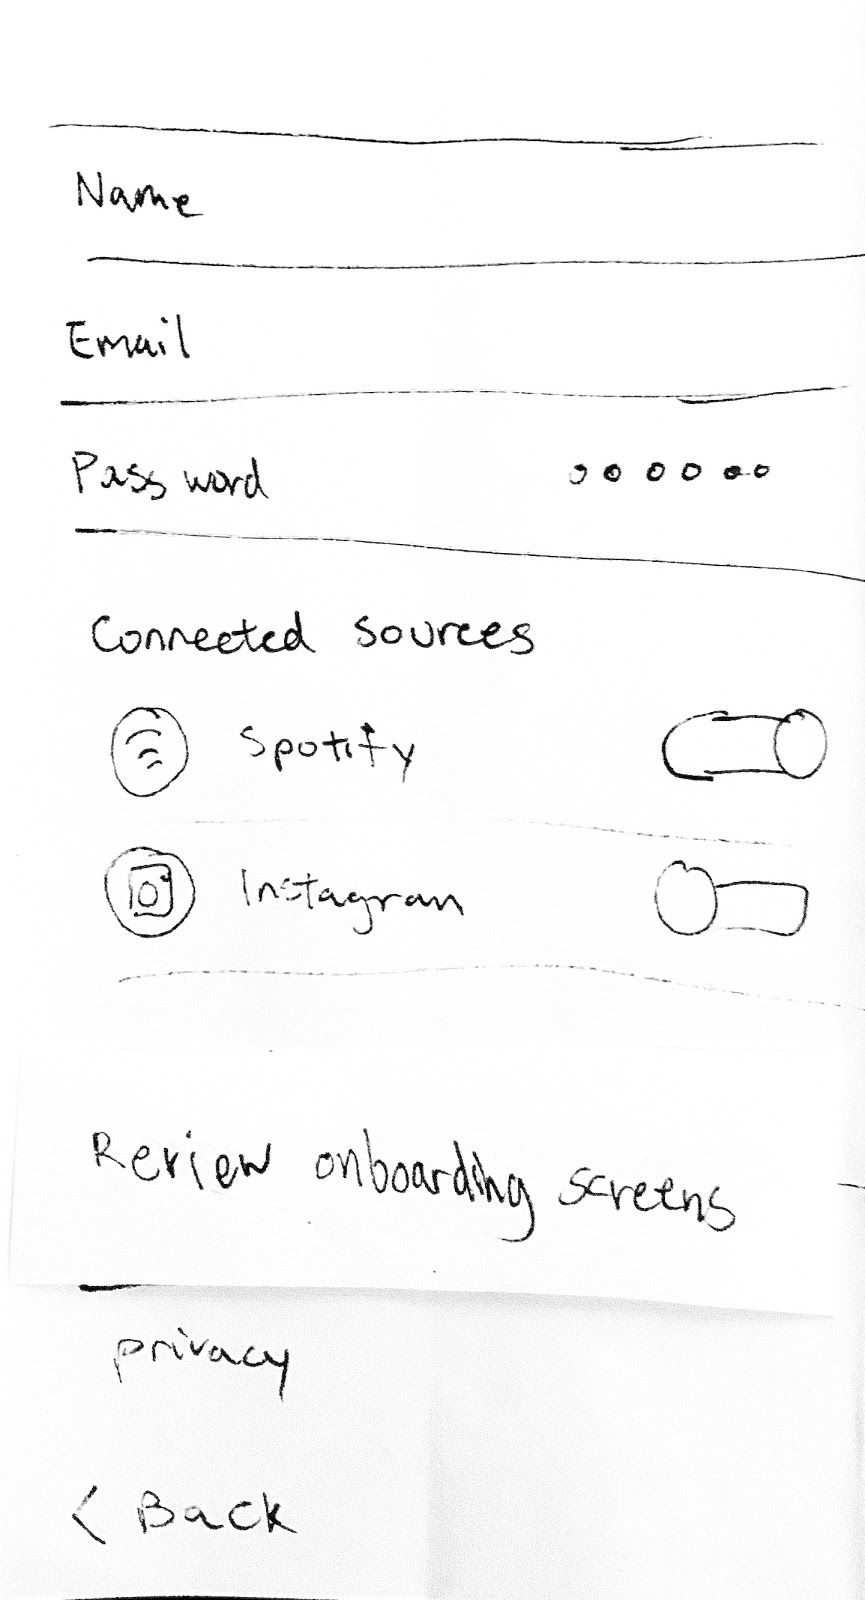 Name
Email
Password
Connected sources
Spotify
Instagram
Review onboarding screens
privacy
< Back